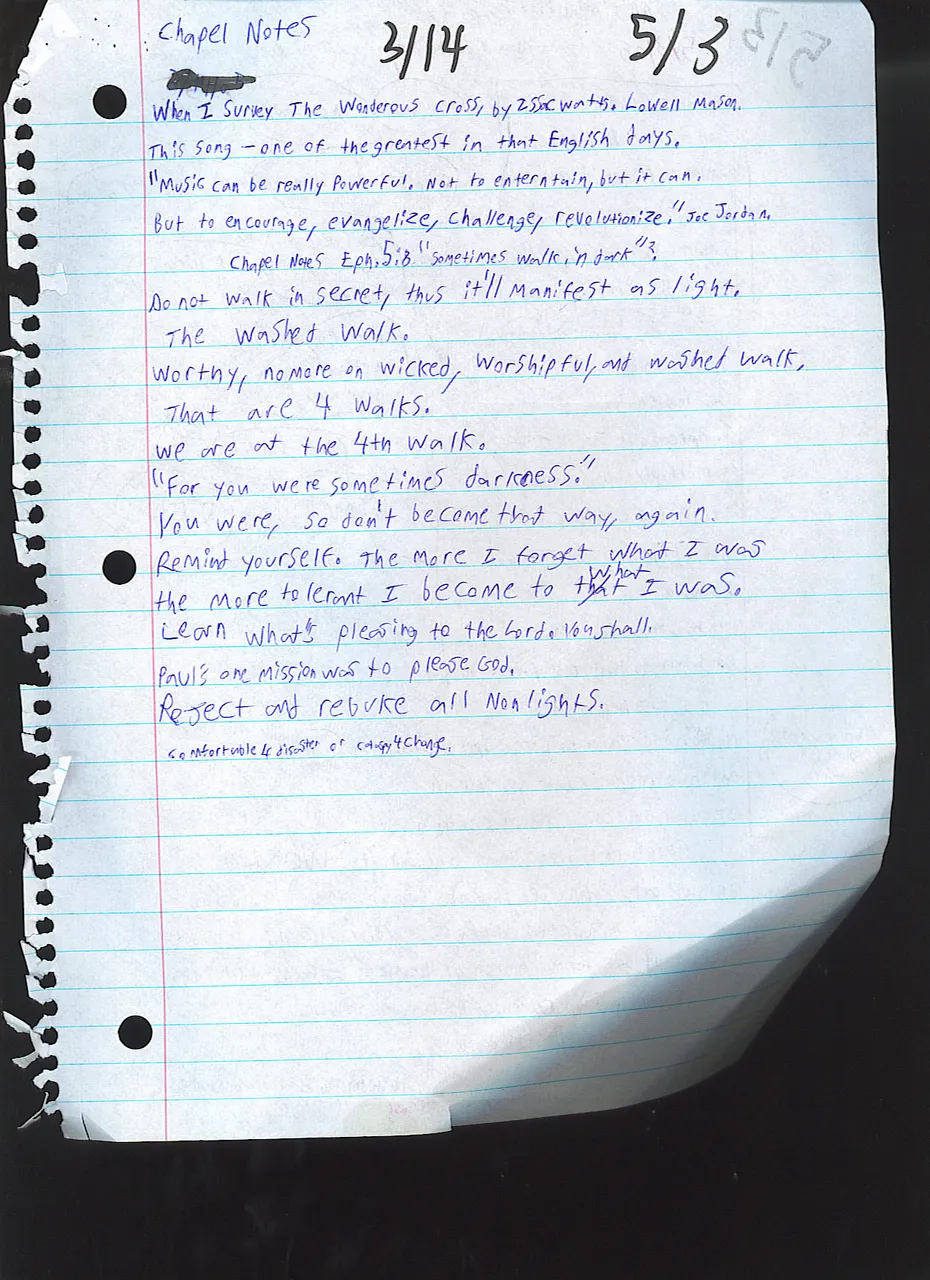 Chapel Notes 3/14 5/3
When I Survey The Wonderous cross, by Issac watts. Lowell Mason.
This song - one of the greatest in that English days.
"Music can be really Powerful. Not to enterntain, but it can.
But to encourage, evangelize, challenge, revolutionize." Joe Jordan.
Chapel Notes Eph. 5:8 "sometimes walk in dark"?
Do not walk in secret, thus it'll manifest as light.
The washed walk.
Worthy, no more on wicked, worshipful, and washed walk,
That are 4 walks.
We are at the 4th walk.
"For you were sometimes darkness."
You were, so don't become that way, again.
Remind yourself. The more I forget what I was
the more tolerant I become to what I was.
Learn what's pleasing to the Lord. You shall.
Paul's one mission was to please God.
Reject and rebuke all Nonlights.
comfortable 4 disaster or 4 change.